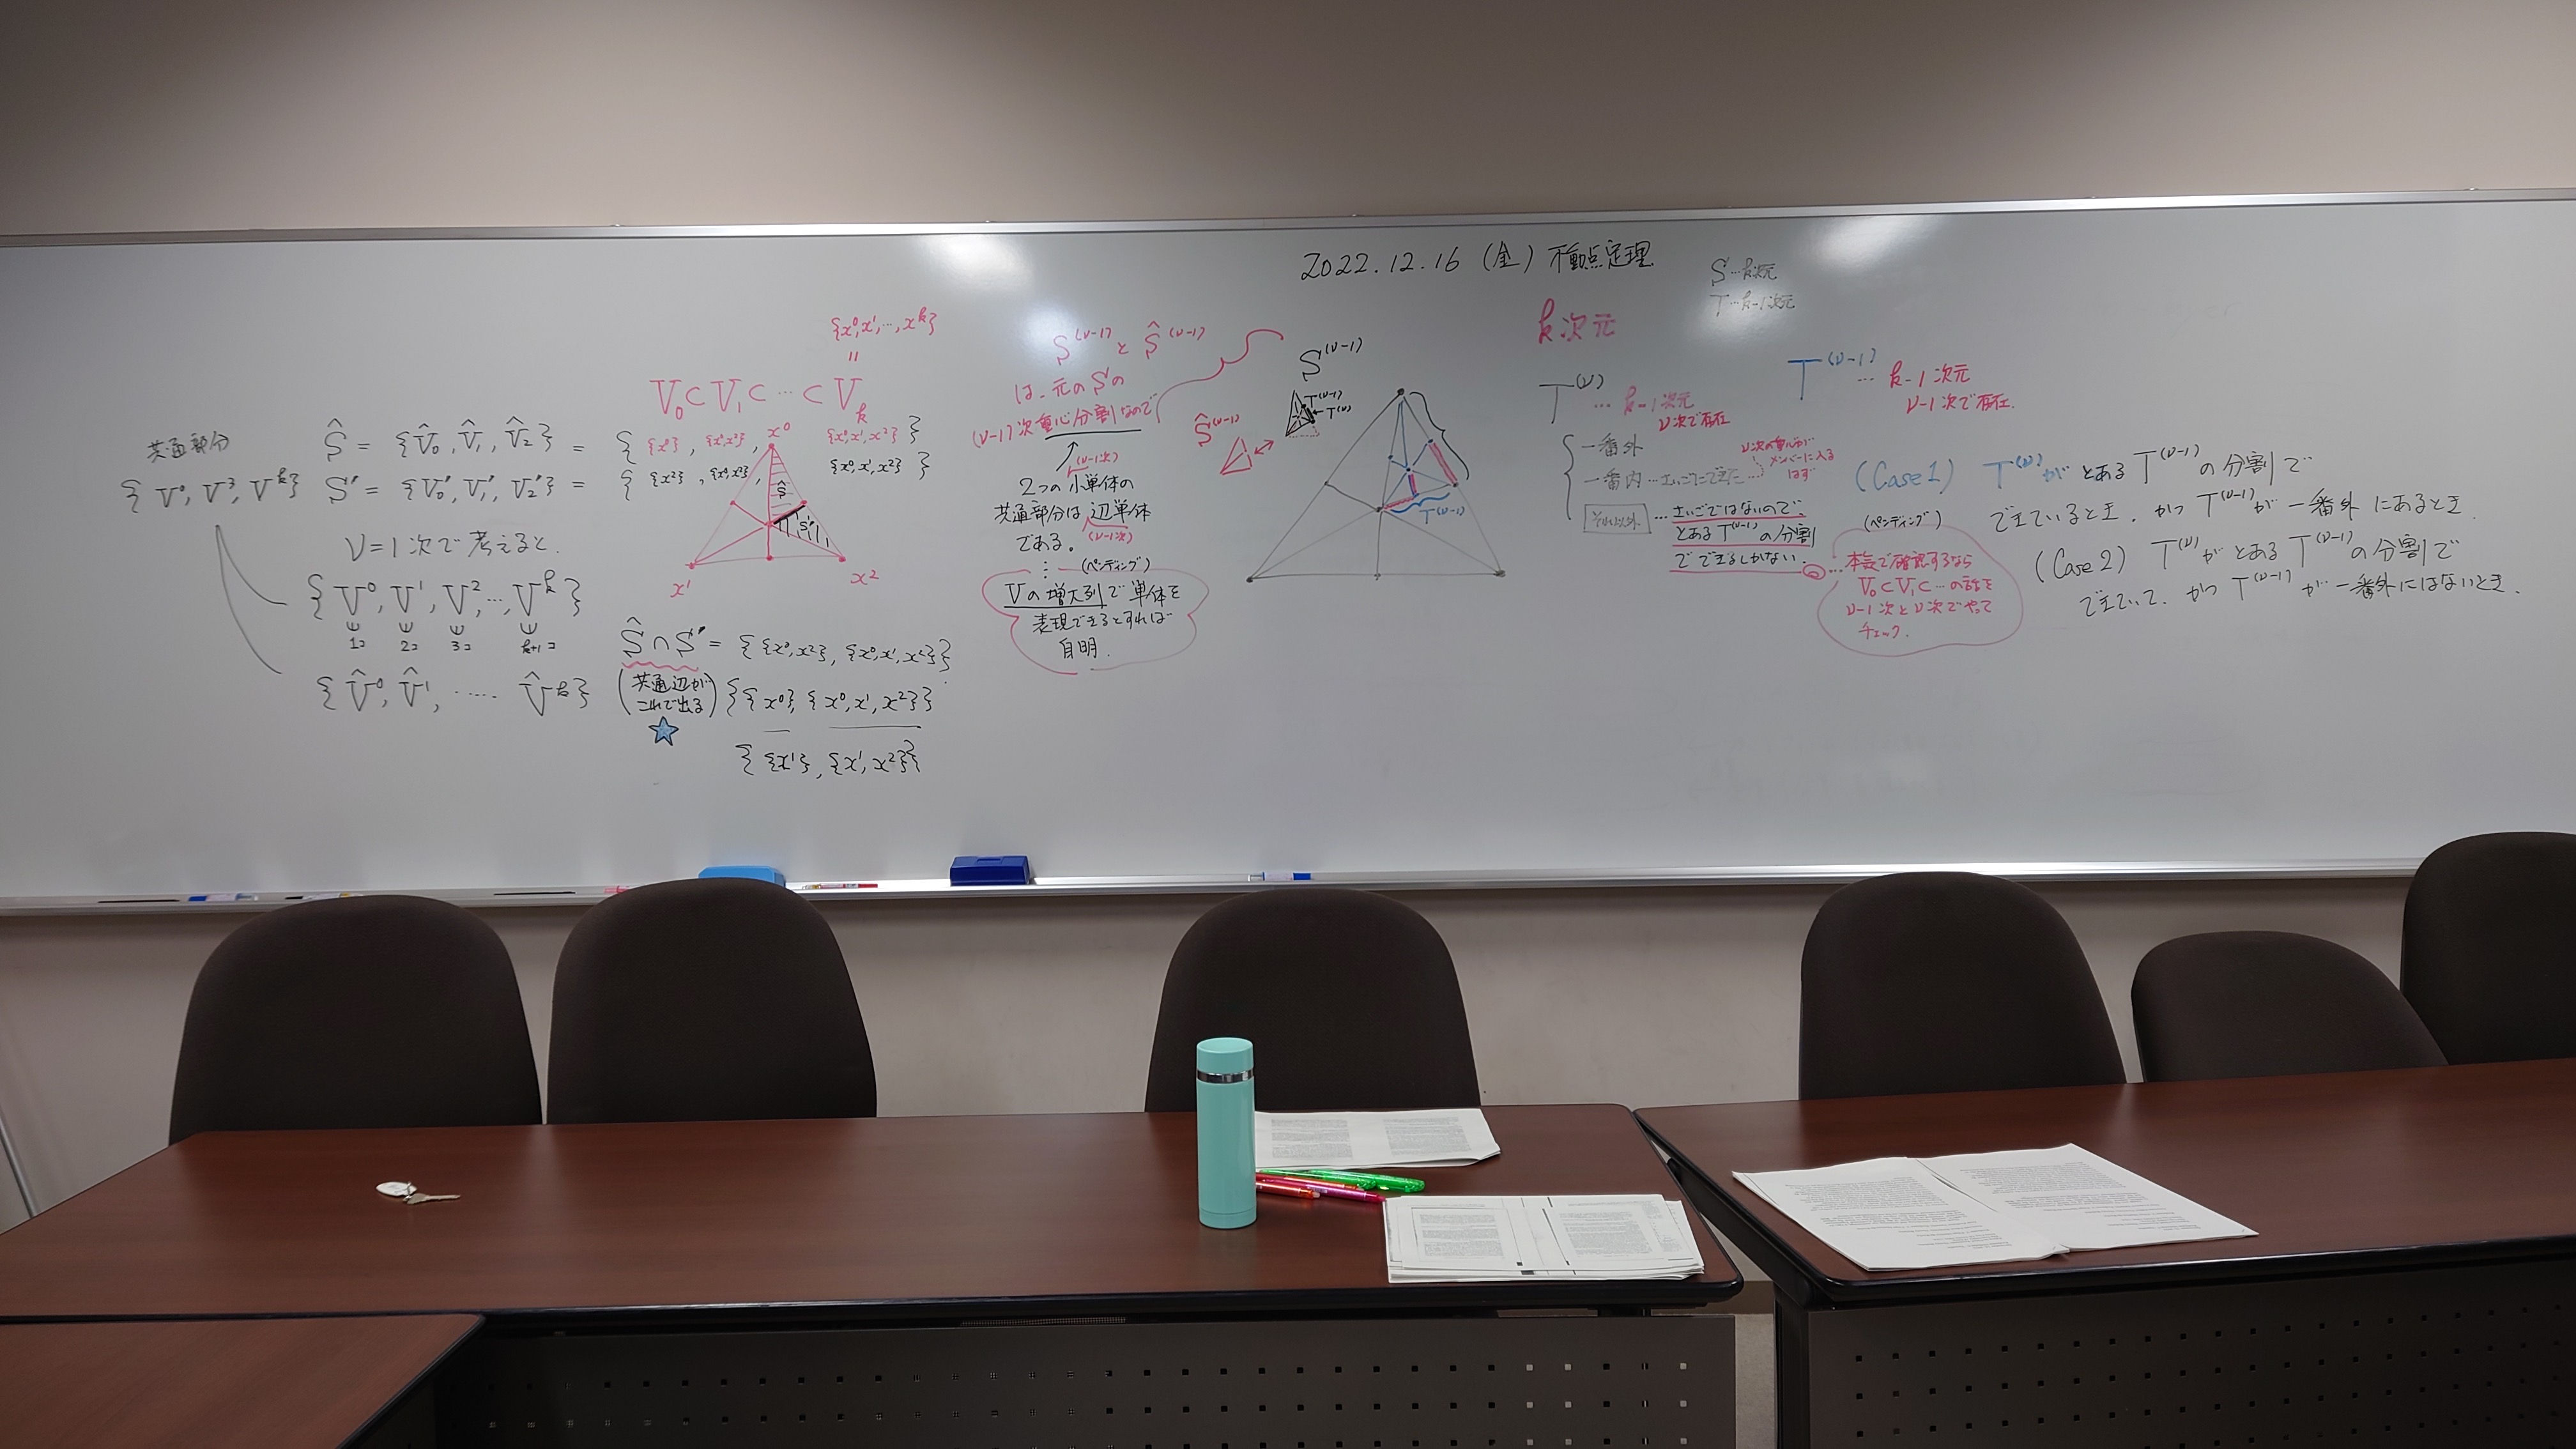 2022.12.16 (金) 不動点定理
S…k次元
T…k-1次元
{x⁰,x¹,…,xᵏ}
=
V₀⊂V₁⊂…⊂Vₖ
共通部分
{V⁰, V³, Vᵏ}
Ŝ = {V̂₀, V̂₁, V̂₂} = {{x⁰}, {x⁰,x²}, {x⁰,x¹,x²}}
S' = {V₀', V₁', V₂'} = {{x²}, {x⁰,x²}, {x⁰,x¹,x²}}
x⁰
Ŝ
S'
x¹
x²
ν=1次で考えると.
{V⁰, V¹, V²,…, Vᵏ}
1コ 2コ 3コ k+1コ
{V̂⁰, V̂¹, ….. V̂ᵏ}
Ŝ∩S' = {{x⁰,x²}, {x⁰,x¹,x²}}
(共通辺が
これで出る)
{{x⁰}, {x⁰,x¹,x²}}
{{x¹}, {x¹,x²}}
S⁽ν⁻¹⁾と Ŝ⁽ν⁻¹⁾
は、元のSの
(ν-1)次重心分割なので
(ν-1次)
2つの小単体の
共通部分は辺単体
(ν-1次)
である。
(ペンディング)
Vの増大列で単体を
表現できるとすれば
自明.
S⁽ν⁻¹⁾
Ŝ⁽ν⁻¹⁾
T⁽ν⁻¹⁾
←T⁽ν⁾
T⁽ν⁻¹⁾
k次元
T⁽ν⁾ … k-1次元
ν次で存在
一番外
一番内…さいごにできた…
ν次の重心が
メンバーに入る
はず
それ以外…さいごではないので、
とあるT⁽ν⁻¹⁾の分割
でできるしかない.
T⁽ν⁻¹⁾ … k-1次元
ν-1次で存在.
(ペンディング)
本気で確認するなら
V₀⊂V₁⊂…の話を
ν-1次とν次でやって
チェック.
(Case1) T⁽ν⁾がとあるT⁽ν⁻¹⁾の分割で
できているとき. かつT⁽ν⁻¹⁾が一番外にあるとき.
(Case2) T⁽ν⁾がとあるT⁽ν⁻¹⁾の分割で
できていて. かつT⁽ν⁻¹⁾が一番外にはないとき.